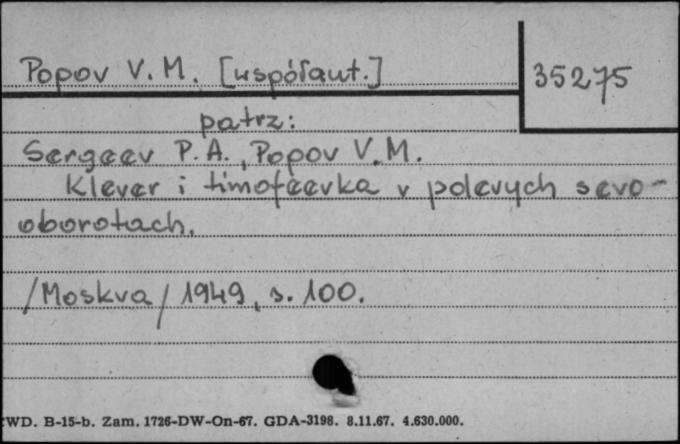 Popov V. M. [współaut.]
35275
patrz:
Sergeev P. A., Popov V. M.
Klever i timofeevka v polevych sevo-
oborotach.
/Moskva/ 1949, s. 100.
WD. B-15-b. Zam. 1726-DW-On-67. GDA-3198. 8.11.67. 4.630.000.